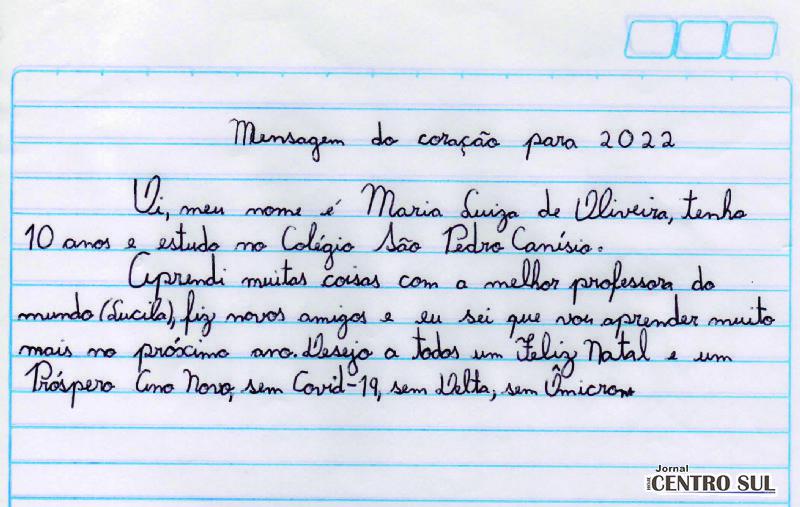 Mensagem do coração para 2022
Oi, meu nome é Maria Luiza de Oliveira, tenho
10 anos e estudo no Colégio São Pedro Canísio.
Aprendi muitas coisas com a melhor professora do
mundo (Lucila), fiz novos amigos e eu sei que vou aprender muito
mais no próximo ano. Desejo a todos um Feliz Natal e um
Próspero Ano Novo, sem Covid-19, sem Delta, sem Ômicron.
Jornal
CENTRO SUL